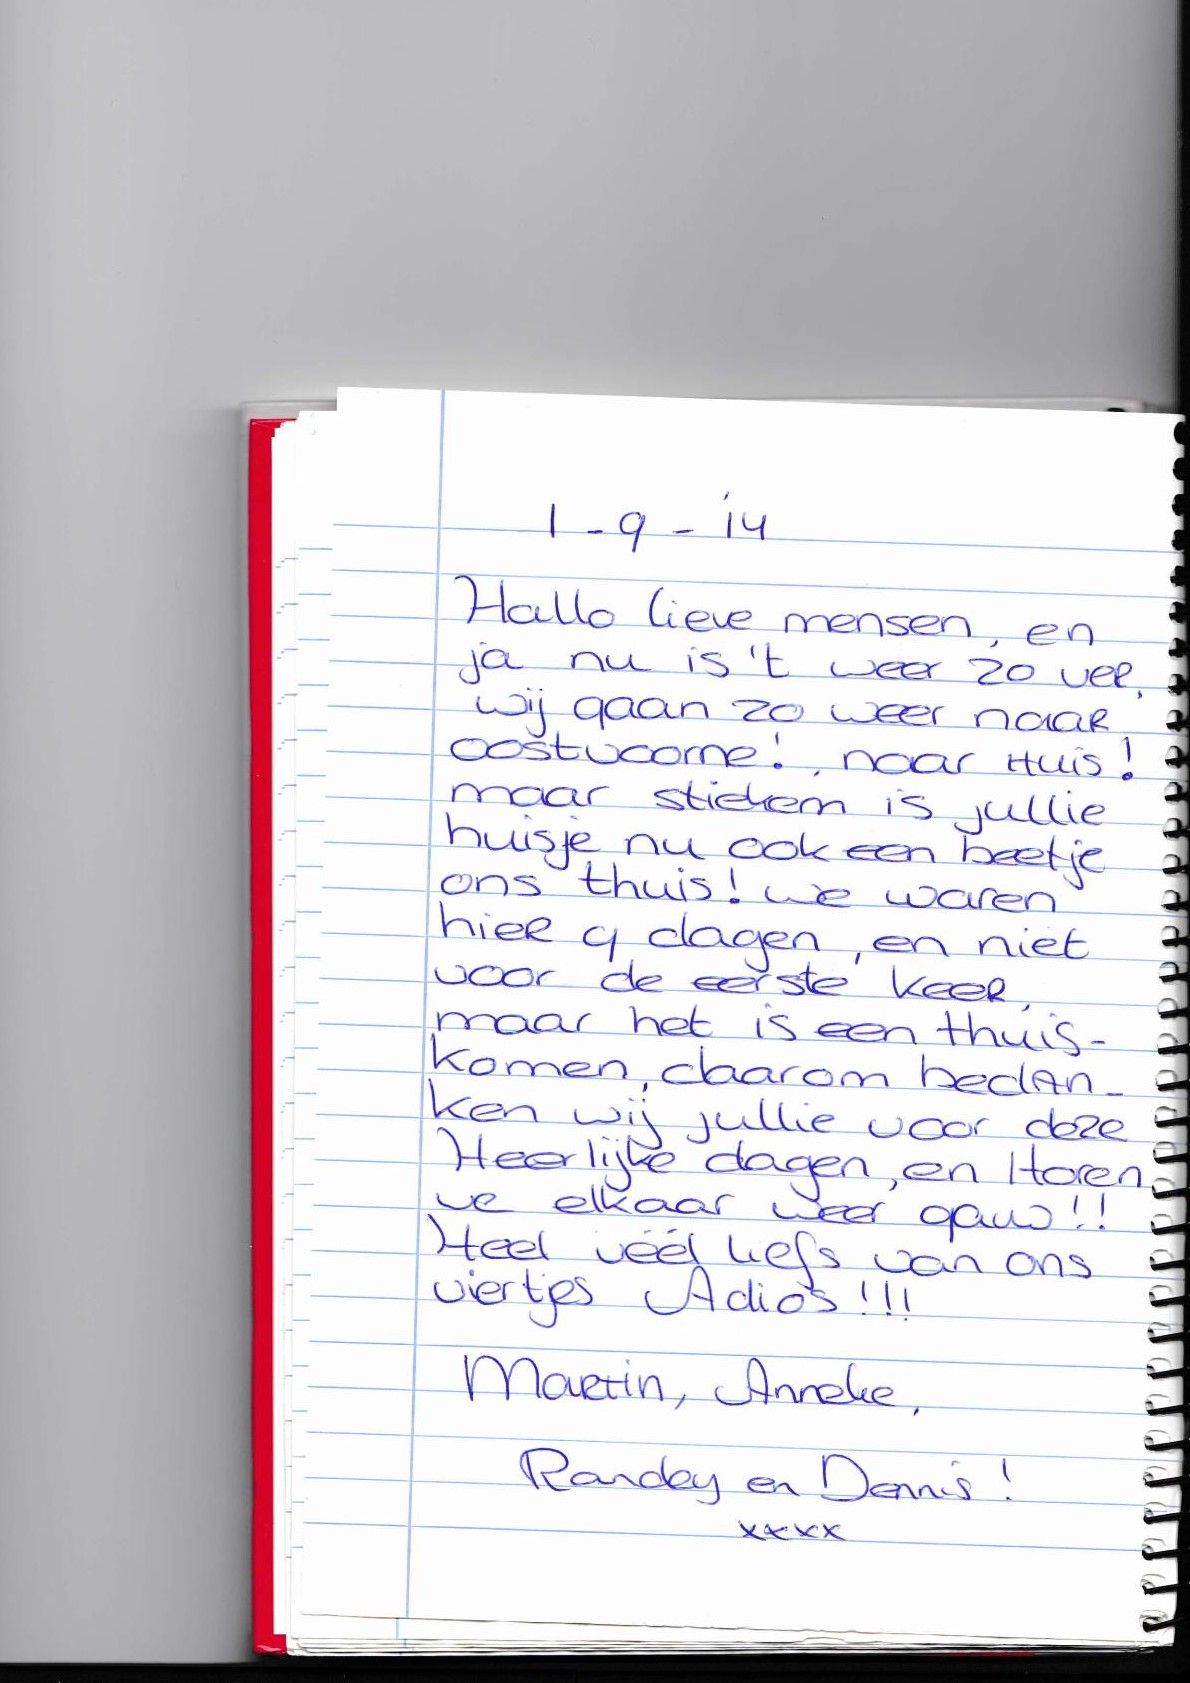 1 - 9 - '14
Hallo lieve mensen, en
ja nu is 't weer zo ver,
wij gaan zo weer naar
oostvoorne!, naar Huis!
maar stiekem is jullie
huisje nu ook een beetje
ons thuis! we waren
hier 9 dagen, en niet
voor de eerste keer,
maar het is een thuis-
komen, daarom bedan-
ken wij jullie voor deze
Heerlijke dagen, en Horen
we elkaar weer gauw!!
Heel véél liefs van ons
viertjes Adios!!!
Martin, Anneke,
Randey en Dennis!
xxxx